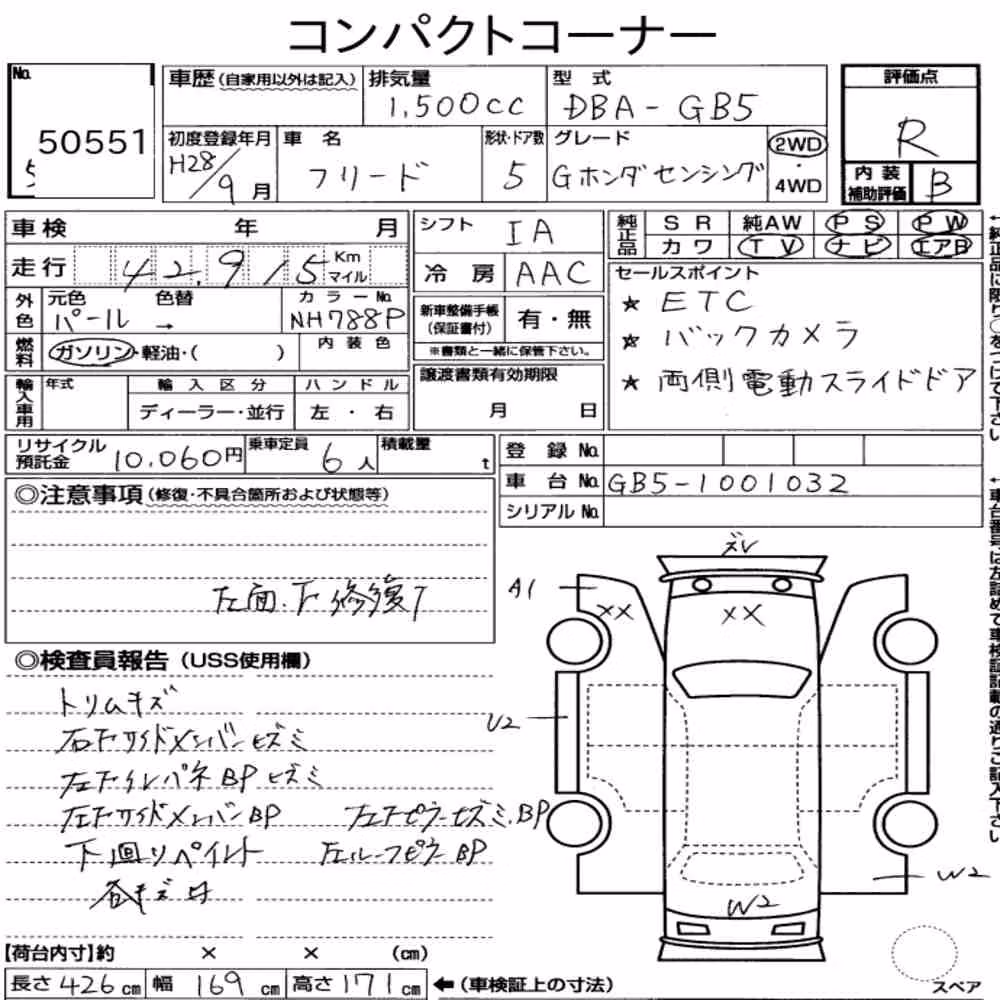 コンパクトコーナー
No. 50551
車歴 (自家用以外は記入) 排気量 1,500cc 型式 DBA-GB5
初度登録年月 H28/9月 車名 フリード 形状・ドア数 5 グレード Gホンダセンシング 2WD・4WD
評価点 R
内装補助評価 B
車検 年 月
走行 42,915 Km マイル
外色 元色 パール 色替 → カラーNo. NH788P
燃料 ガソリン・軽油・( ) 内装色
輸入車用 年式 輸入区分 ディーラー・並行 ハンドル 左・右
シフト IA
冷房 AAC
新車整備手帳(保証書付) 有・無
※書類と一緒に保管下さい。
譲渡書類有効期限 月 日
純正品 SR 純AW PS PW
カワ TV ナビ エアB
セールスポイント
★ ETC
★ バックカメラ
★ 両側電動スライドドア
←純正品に限り○をつけて下さい
リサイクル預託金 10,060円 乗車定員 6人 積載量 t
登録No.
車台No. GB5-1001032
シリアルNo.
←車台番号は左詰めで車検証記載の通りご記入下さい
◎注意事項(修復・不具合箇所および状態等)
左面・下修復
◎検査員報告(USS使用欄)
トリムキズ
右下サイドメンバーヒズミ
左下インパネBPヒズミ
左下サイドメンバーBP 左下ピラーヒズミ、BP
下回リペイント 左ルーフピラーBP
各キズ
ズレ
A1
XX
XX
U2
W2
W2
スペア
【荷台内寸】約 × × (cm)
長さ 426 cm 幅 169 cm 高さ 171 cm ←(車検証上の寸法)